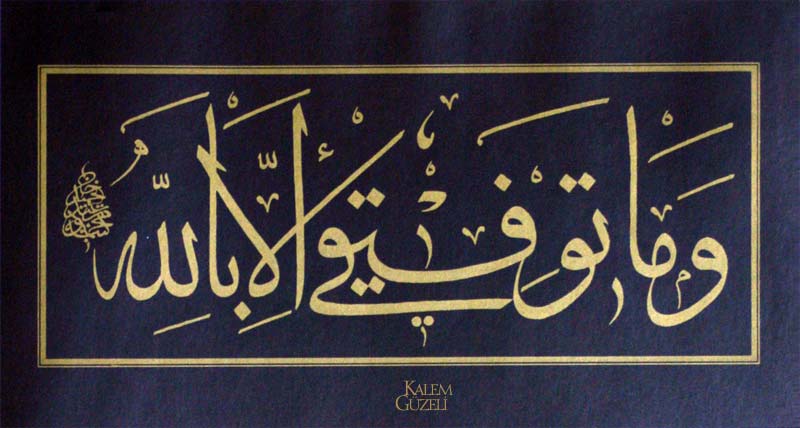 وَمَا تَوْفِيقِي إِلَّا بِاللّٰهِ
KALEM
GÜZELİ